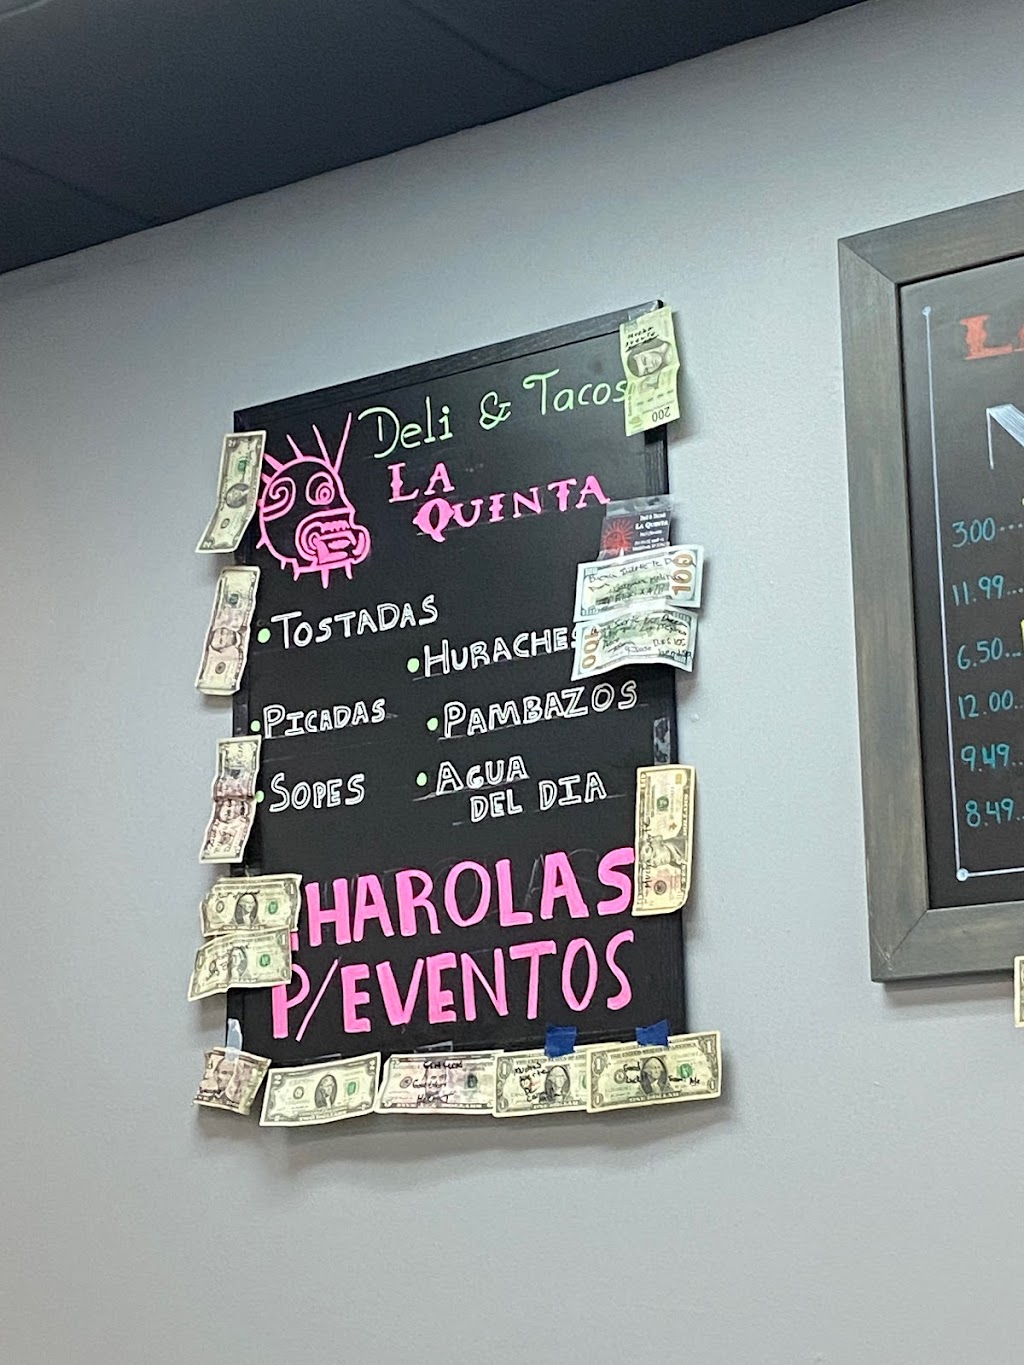 Deli & Tacos
LA
QUINTA
• TOSTADAS
• HURACHES
• PICADAS
• PAMBAZOS
• SOPES
• AGUA
DEL DIA
HAROLAS
P/EVENTOS
200
LA QUINTA
100
100
3.00...
11.99...
6.50...
12.00...
9.49...
8.49...